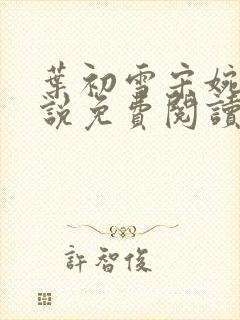 葉初雪宋婉
說免費閱讀
許智俊